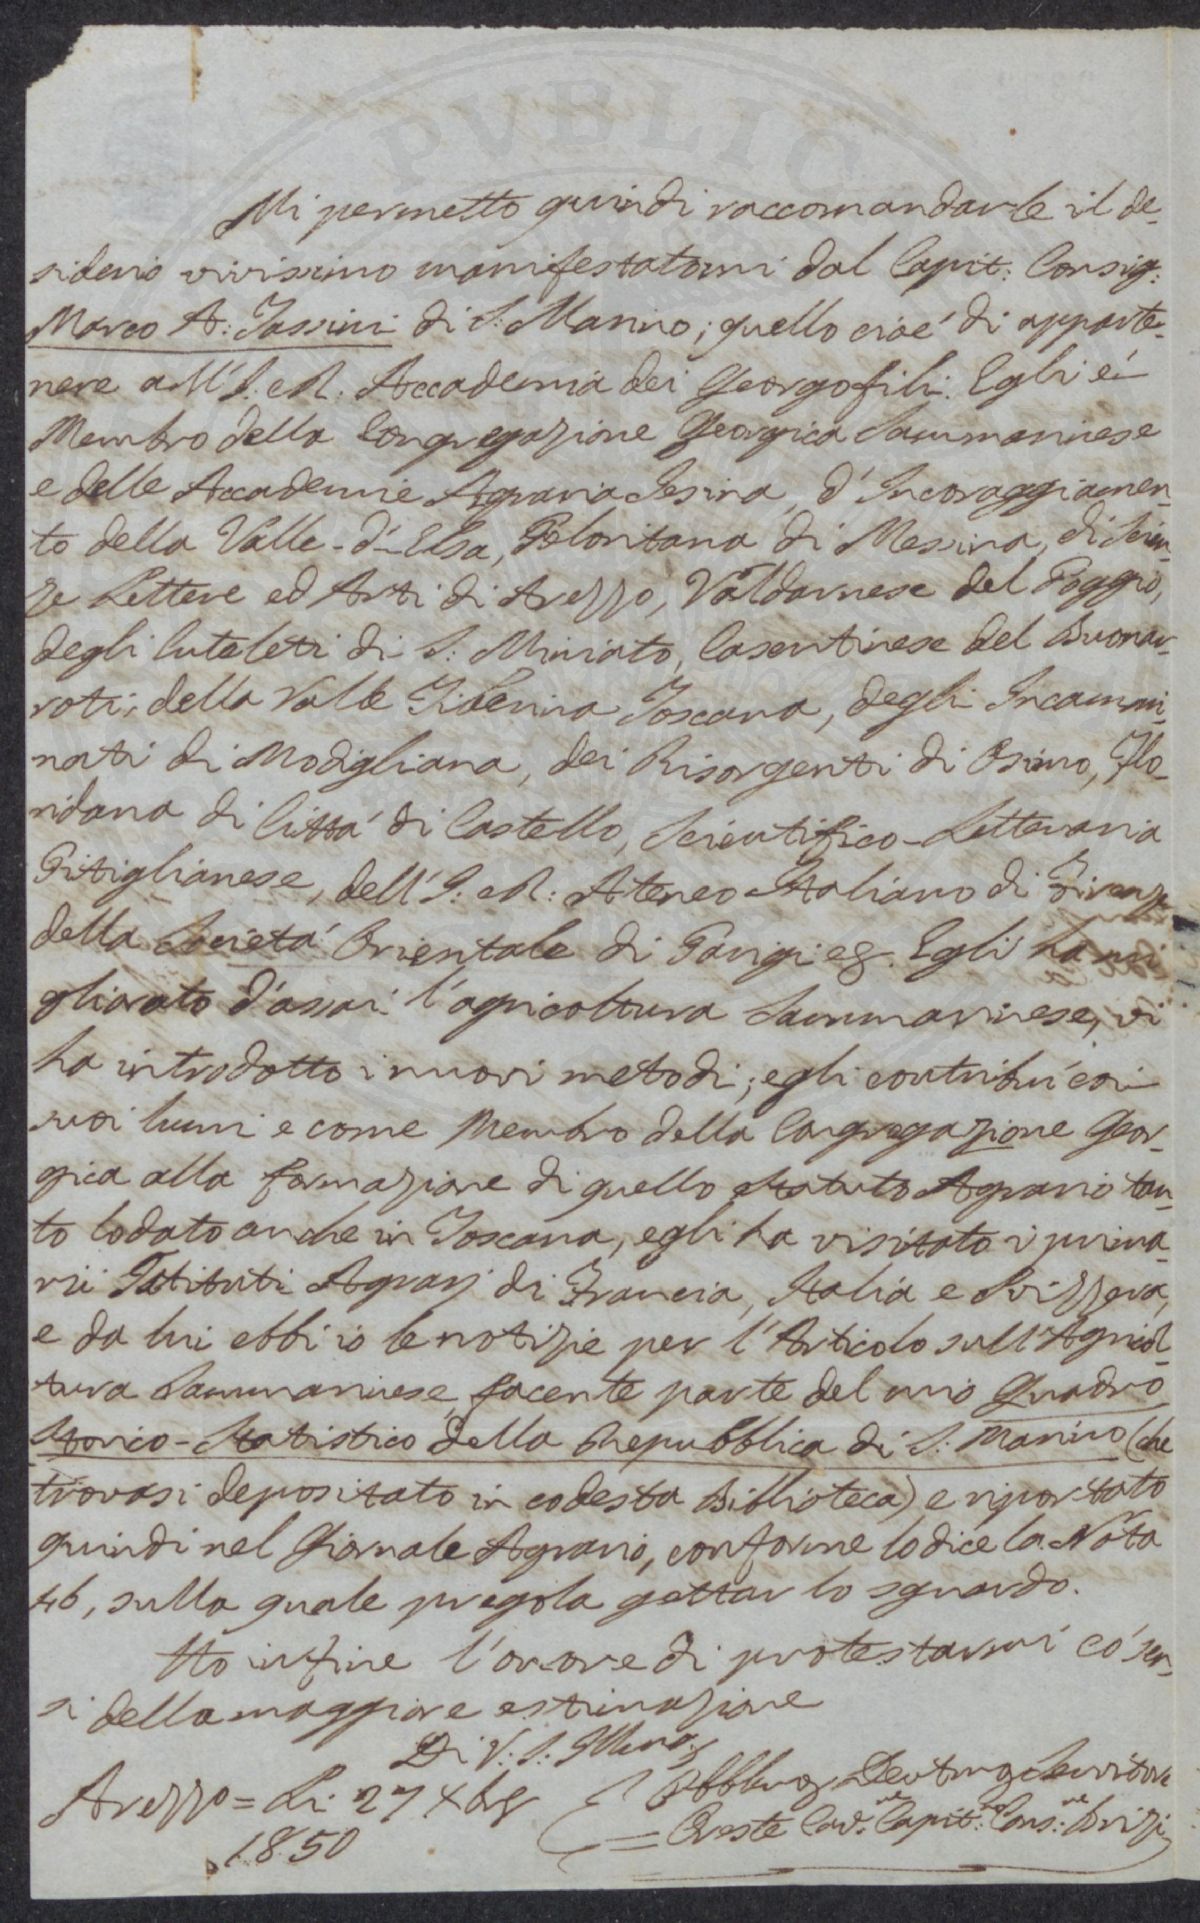 PVBLIC
Mi permetto quindi raccomandarle il de-
siderio vivissimo manifestatomi dal Capit: Consig:
Marco A: Tassini di S: Marino; quello cioè di apparte-
nere all'I. e R. Accademia dei Georgofili. Egli è
Membro della Congregazione Georgica Sammarinese
e delle Accademie Agraria Jesina, d'Incoraggiamen-
to della Valle-d'-Elsa, Peloritana di Messina, di Scien-
ze Lettere ed Arti di Arezzo, Valdarnese del Poggio,
degli Euteleti di S: Miniato, Casentinese del Buonar-
roti; della Valle Tiberina Toscana, degli Incammi-
nati di Modigliana, dei Risorgenti di Osimo, Flo-
ridana di Città di Castello, Scientifico-Letteraria
Pitiglianese, dell'I. e R: Ateneo Italiano di Firenze
della Società Orientale di Parigi eg. Egli ha mi
gliorato d'assai l'agricoltura Sammarinese, vi
ha introdotto i nuovi metodi; egli contribuì coi
suoi lumi e come Membro della Congregazione Geor-
gica alla formazione di quello Statuto Agrario tan-
to lodato anche in Toscana, egli ha visitato i prima-
rii Istituti Agrarj di Francia, Italia e Svizzera,
e da lui ebbi io le notizie per l'Articolo sull'Agricol-
tura Sammarinese, facente parte del mio Quadro
Storico-Statistico della Repubblica di S: Marino (che
trovasi depositato in codesta Biblioteca) e riportato
quindi nel Giornale Agrario, conforme lo dice la Nota
46, sulla quale pregola gettar lo sguardo.
Ho infine l'onore di protestarmi co' sen-
si della maggiore estimazione
Di V: S: Illma
Arezzo = Li 27 Xbre
1850
Obblmo Devtmo Servitore
= Oreste Cav:re Capit:no Cons:re Brizi